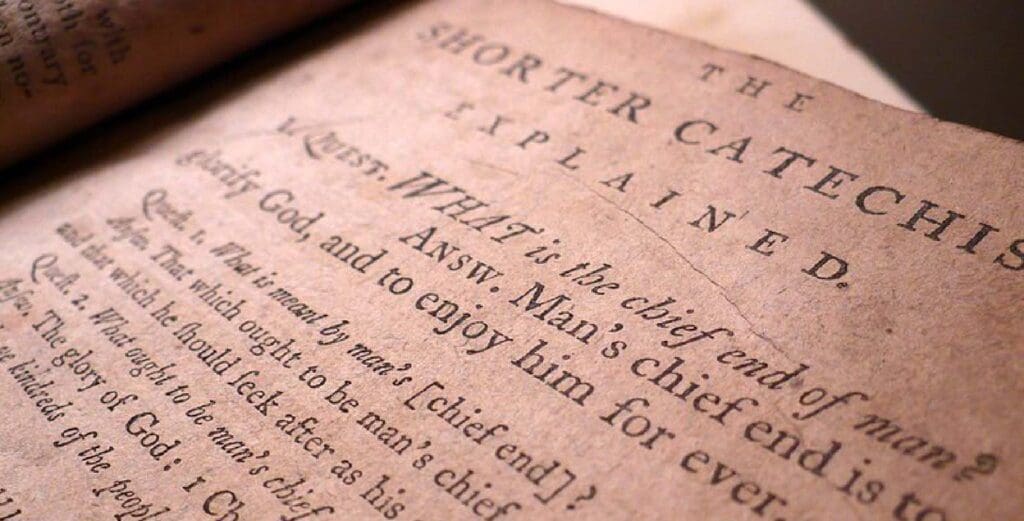 with
oth for
ontrary
en no-
THE
SHORTER CATECHIS
EXPLAINED.
1. QUEST. WHAT is the chief end of man?
ANSW. Man's chief end is to
glorify God, and to enjoy him for ever.
Queſt. 1. What is meant by man's [chief end]?
Anſw. That which ought to be man's chief
and that which he ſhould ſeek after as his
Queſt. 2. What ought to be man's chief
Anſw. The glory of God: 1 Ch
kindreds of the people